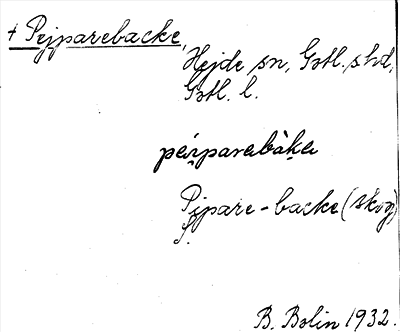 + Pejparebacke,
Hejde sn, Gotl. s hd,
Gotl. l.
pæi̯parabàka
Pipare-backe (skog)
f.
B. Bolin 1932.